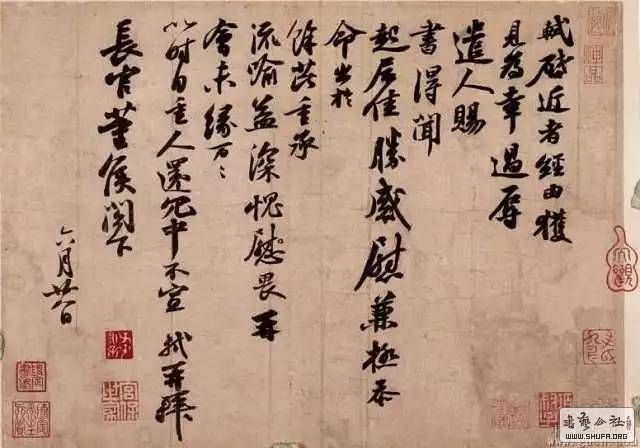 軾啓近者經由獲
見為幸過辱
遣人賜
書得聞
起居佳勝感慰兼極忝
命出於
餘芘重承
流喻益深愧慰畏再
會未緣万〻
以時自重人還冗中不宣軾再拜
長官董侯閣下
六月廿八日
WWW.SHUFA.ORG